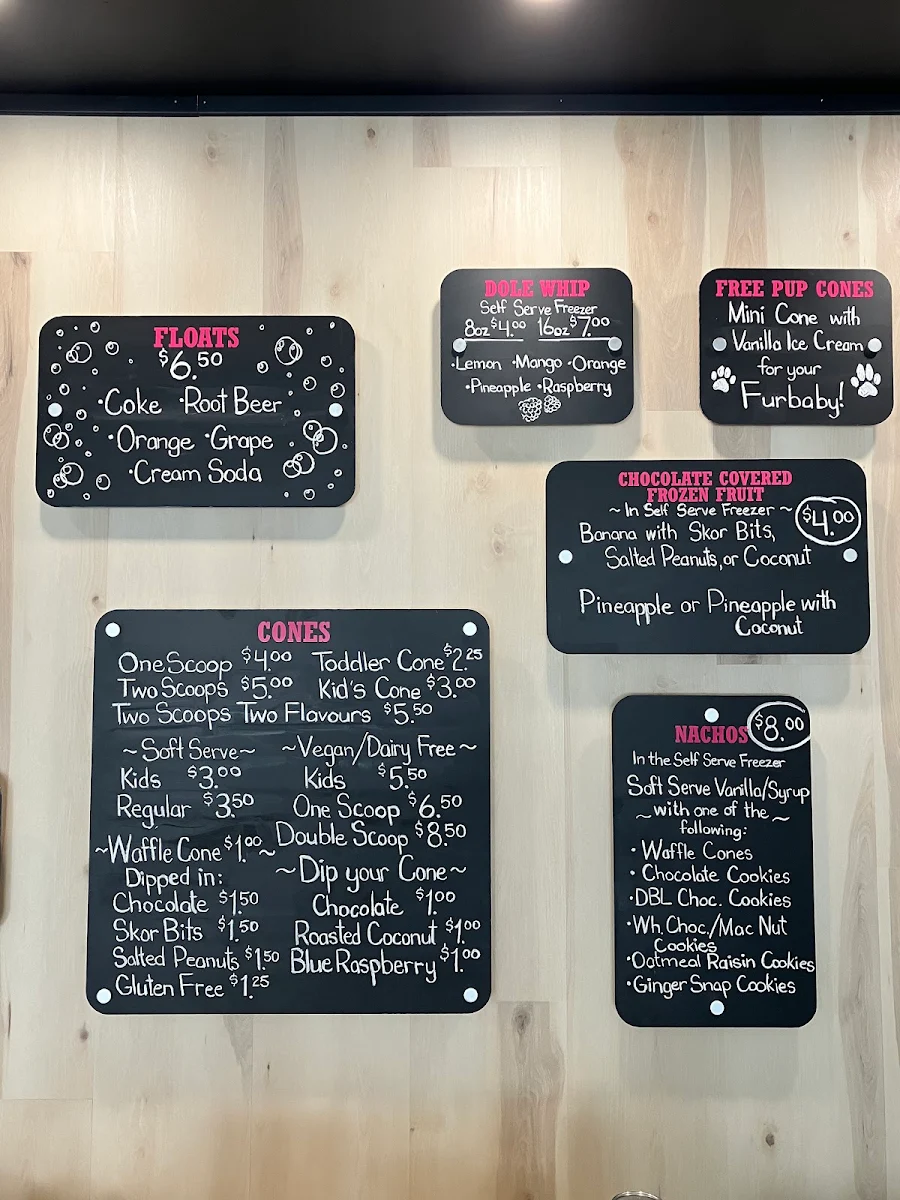 FLOATS
$6.50
•Coke •Root Beer
•Orange •Grape
•Cream Soda
DOLE WHIP
Self Serve Freezer
8oz $4.00 16oz $7.00
•Lemon •Mango •Orange
•Pineapple •Raspberry
FREE PUP CONES
Mini Cone with
Vanilla Ice Cream
for your
Furbaby!
CHOCOLATE COVERED
FROZEN FRUIT
~ In Self Serve Freezer ~
$4.00
Banana with Skor Bits,
Salted Peanuts, or Coconut
Pineapple or Pineapple with
Coconut
CONES
One Scoop $4.00 Toddler Cone $2.25
Two Scoops $5.00 Kid's Cone $3.00
Two Scoops Two Flavours $5.50
~Soft Serve~
Kids $3.00
Regular $3.50
~Waffle Cone $1.00~
Dipped in:
Chocolate $1.50
Skor Bits $1.50
Salted Peanuts $1.50
Gluten Free $1.25
~Vegan/Dairy Free~
Kids $5.50
One Scoop $6.50
Double Scoop $8.50
~Dip your Cone~
Chocolate $1.00
Roasted Coconut $1.00
Blue Raspberry $1.00
NACHOS $8.00
In the Self Serve Freezer
Soft Serve Vanilla/Syrup
~with one of the~
following:
•Waffle Cones
•Chocolate Cookies
•DBL Choc. Cookies
•Wh. Choc./Mac Nut
Cookies
•Oatmeal Raisin Cookies
•Ginger Snap Cookies